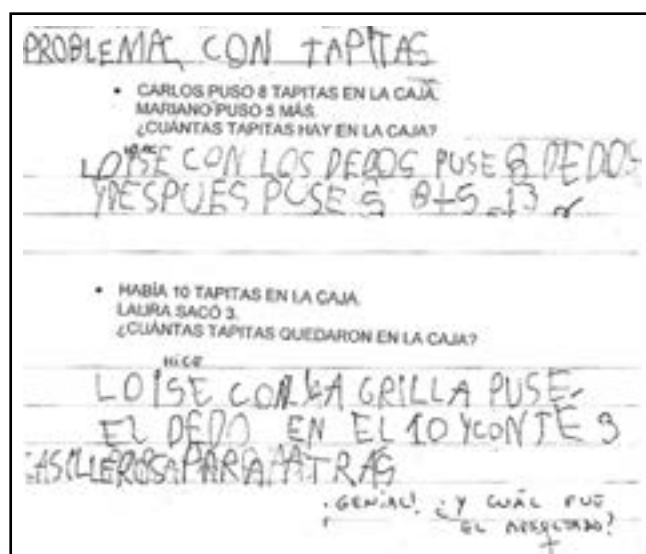 PROBLEMA CON TAPITAS
• CARLOS PUSO 8 TAPITAS EN LA CAJA.
MARIANO PUSO 5 MÁS.
¿CUÁNTAS TAPITAS HAY EN LA CAJA?
LO ISE CON LOS DEDOS PUSE 8 DEDOS
Y DESPUÉS PUSE 5 8+5=13
• HABÍA 10 TAPITAS EN LA CAJA.
LAURA SACÓ 3.
¿CUÁNTAS TAPITAS QUEDARON EN LA CAJA?
HICE
LO ISE CON LA GRILLA PUSE
EL DEDO EN EL 10 Y CONTÉ 3
CASILLEROS PARA ATRAS
¡GENIAL! ¿Y CUÁL FUE
EL RESULTADO?